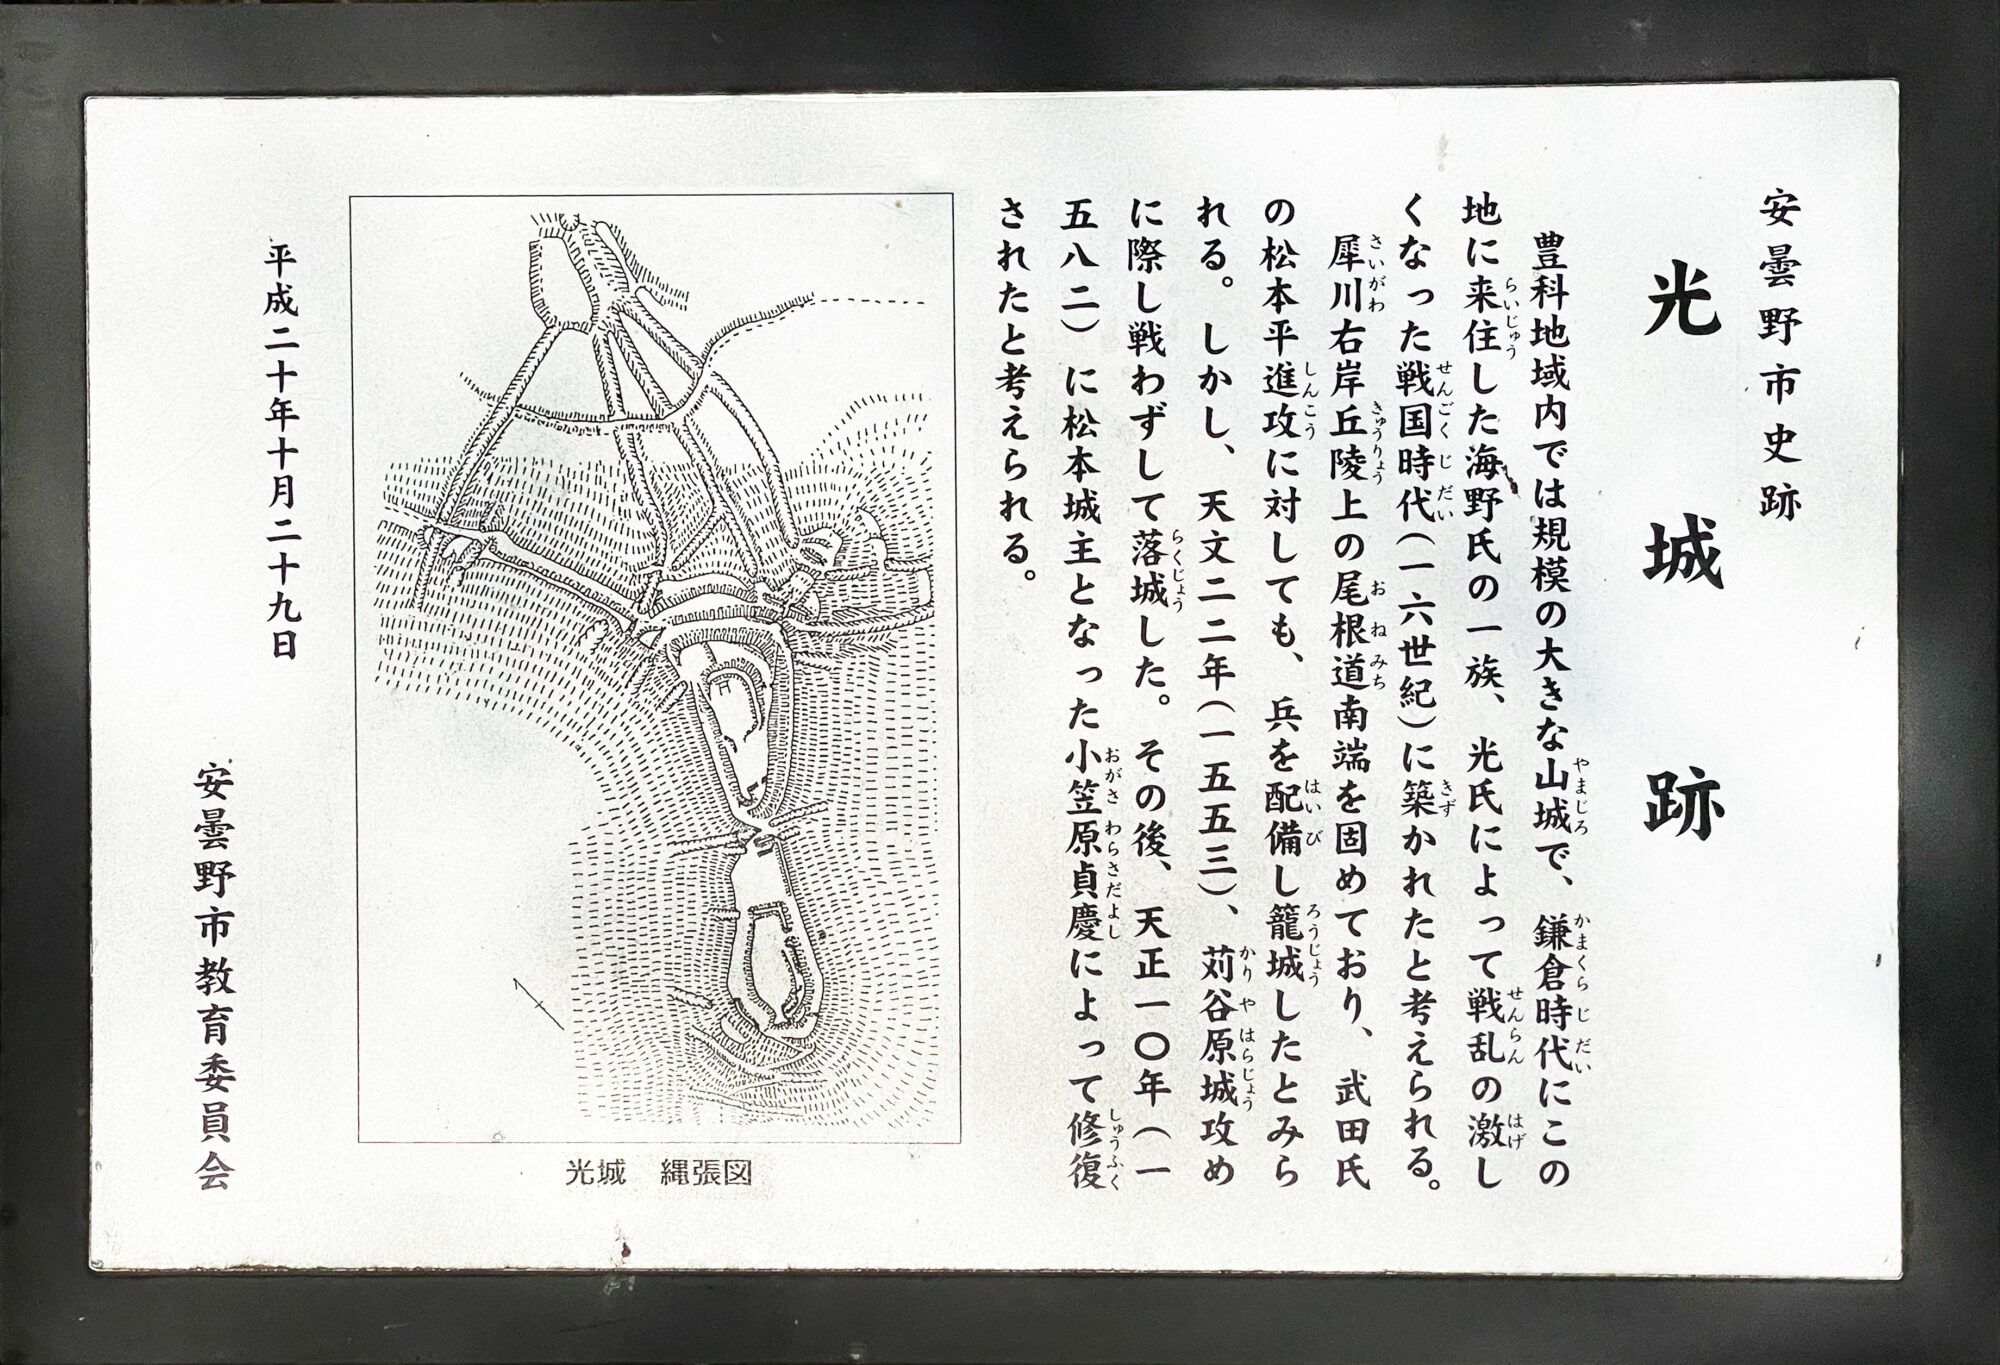 安曇野市史跡
光城跡
豊科地域内では規模の大きな山城で、鎌倉時代にこの
地に来住した海野氏の一族、光氏によって戦乱の激し
くなった戦国時代(一六世紀)に築かれたと考えられる。
犀川右岸丘陵上の尾根道南端を固めており、武田氏
の松本平進攻に対しても、兵を配備し籠城したとみら
れる。しかし、天文二二年(一五五三)、苅谷原城攻め
に際し戦わずして落城した。その後、天正一〇年(一
五八二)に松本城主となった小笠原貞慶によって修復
されたと考えられる。
光城 縄張図
平成二十年十月二十九日
安曇野市教育委員会